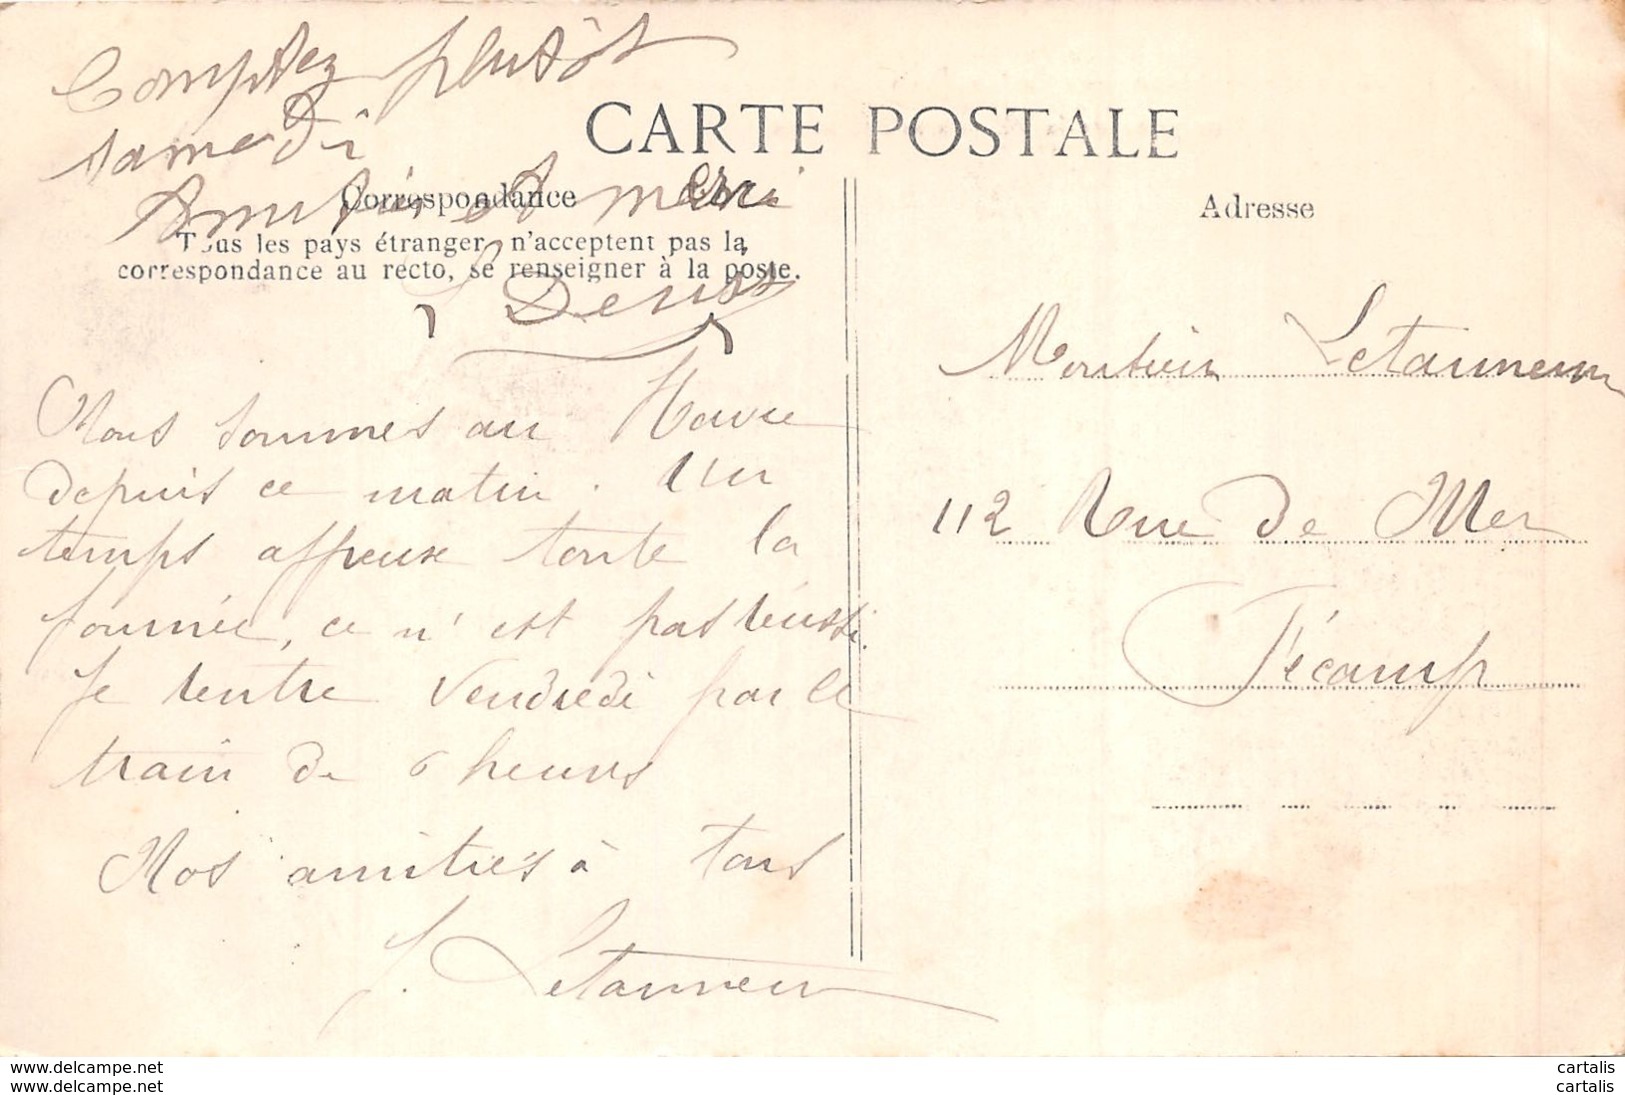 Comptez plutôt
samedi
Amitiés et merci
CARTE POSTALE
Correspondance
Tous les pays étranger, n'acceptent pas la
correspondance au recto, se renseigner à la poste.
Nous sommes au Havre
depuis ce matin. Un
temps affreux toute la
journée, ce n'est pas réussi.
Je rentre Vendredi par le
train de 6 heures
Nos amitiés à tous
J. Letanneur
Adresse
Monsieur Letanneur
112 Rue de Mer
Fécamp
delcampe.net
delcampe.net
cartalis
cartalis